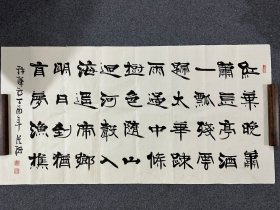 紅葉晚蕭
蕭長亭酒
一瓢殘雲
歸太華疎
雨過中條
樹色隨山
迥河聲入
海遥帝鄉
明日到猶
自夢漁樵
許渾詩丁酉年